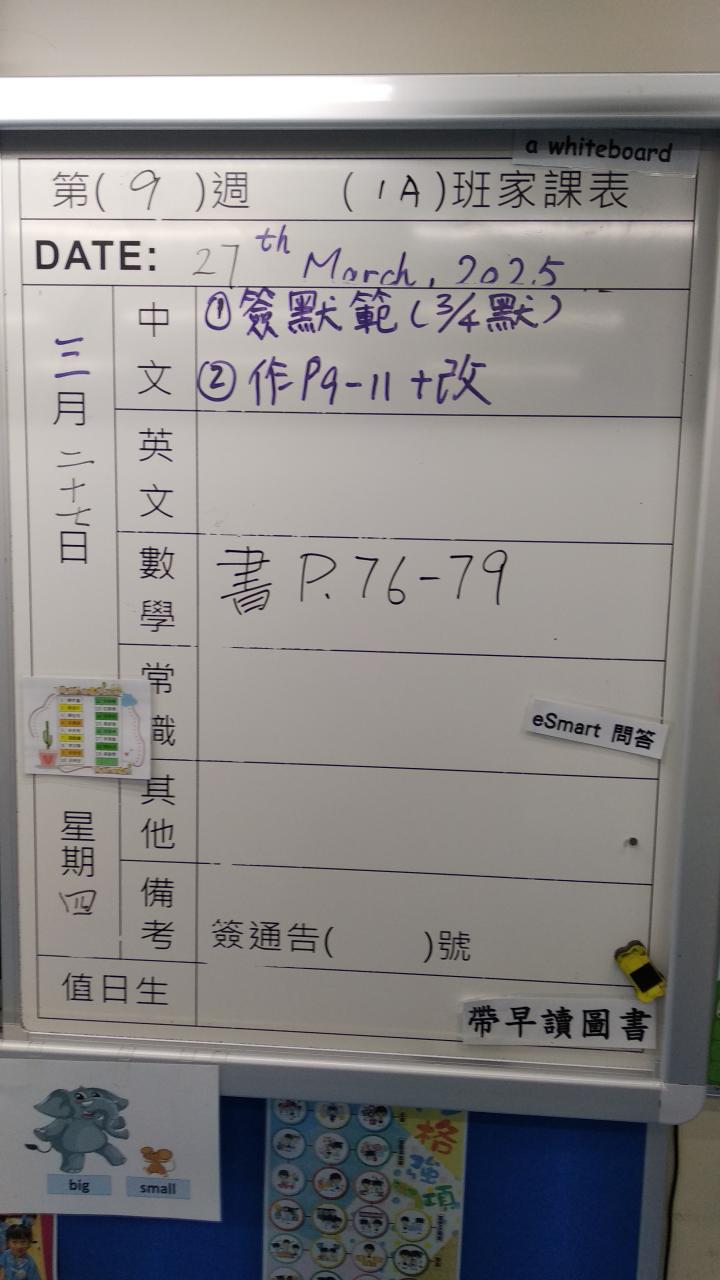 a whiteboard
第( 9 )週 ( 1A )班家課表
DATE: 27th March, 2025
三月二十七日
星期四
中文
①簽默範(3/4默)
②作P9-11+改
英文
數學
書 P.76-79
常識
eSmart 問答
其他
備考
簽通告( )號
值日生
帶早讀圖書
big
small
格強項